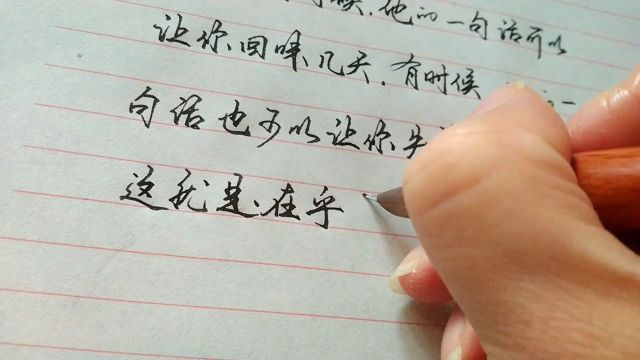 候，他的一句话可以
让你回味几天，有时候 一
句话也可以让你失
这就是在乎